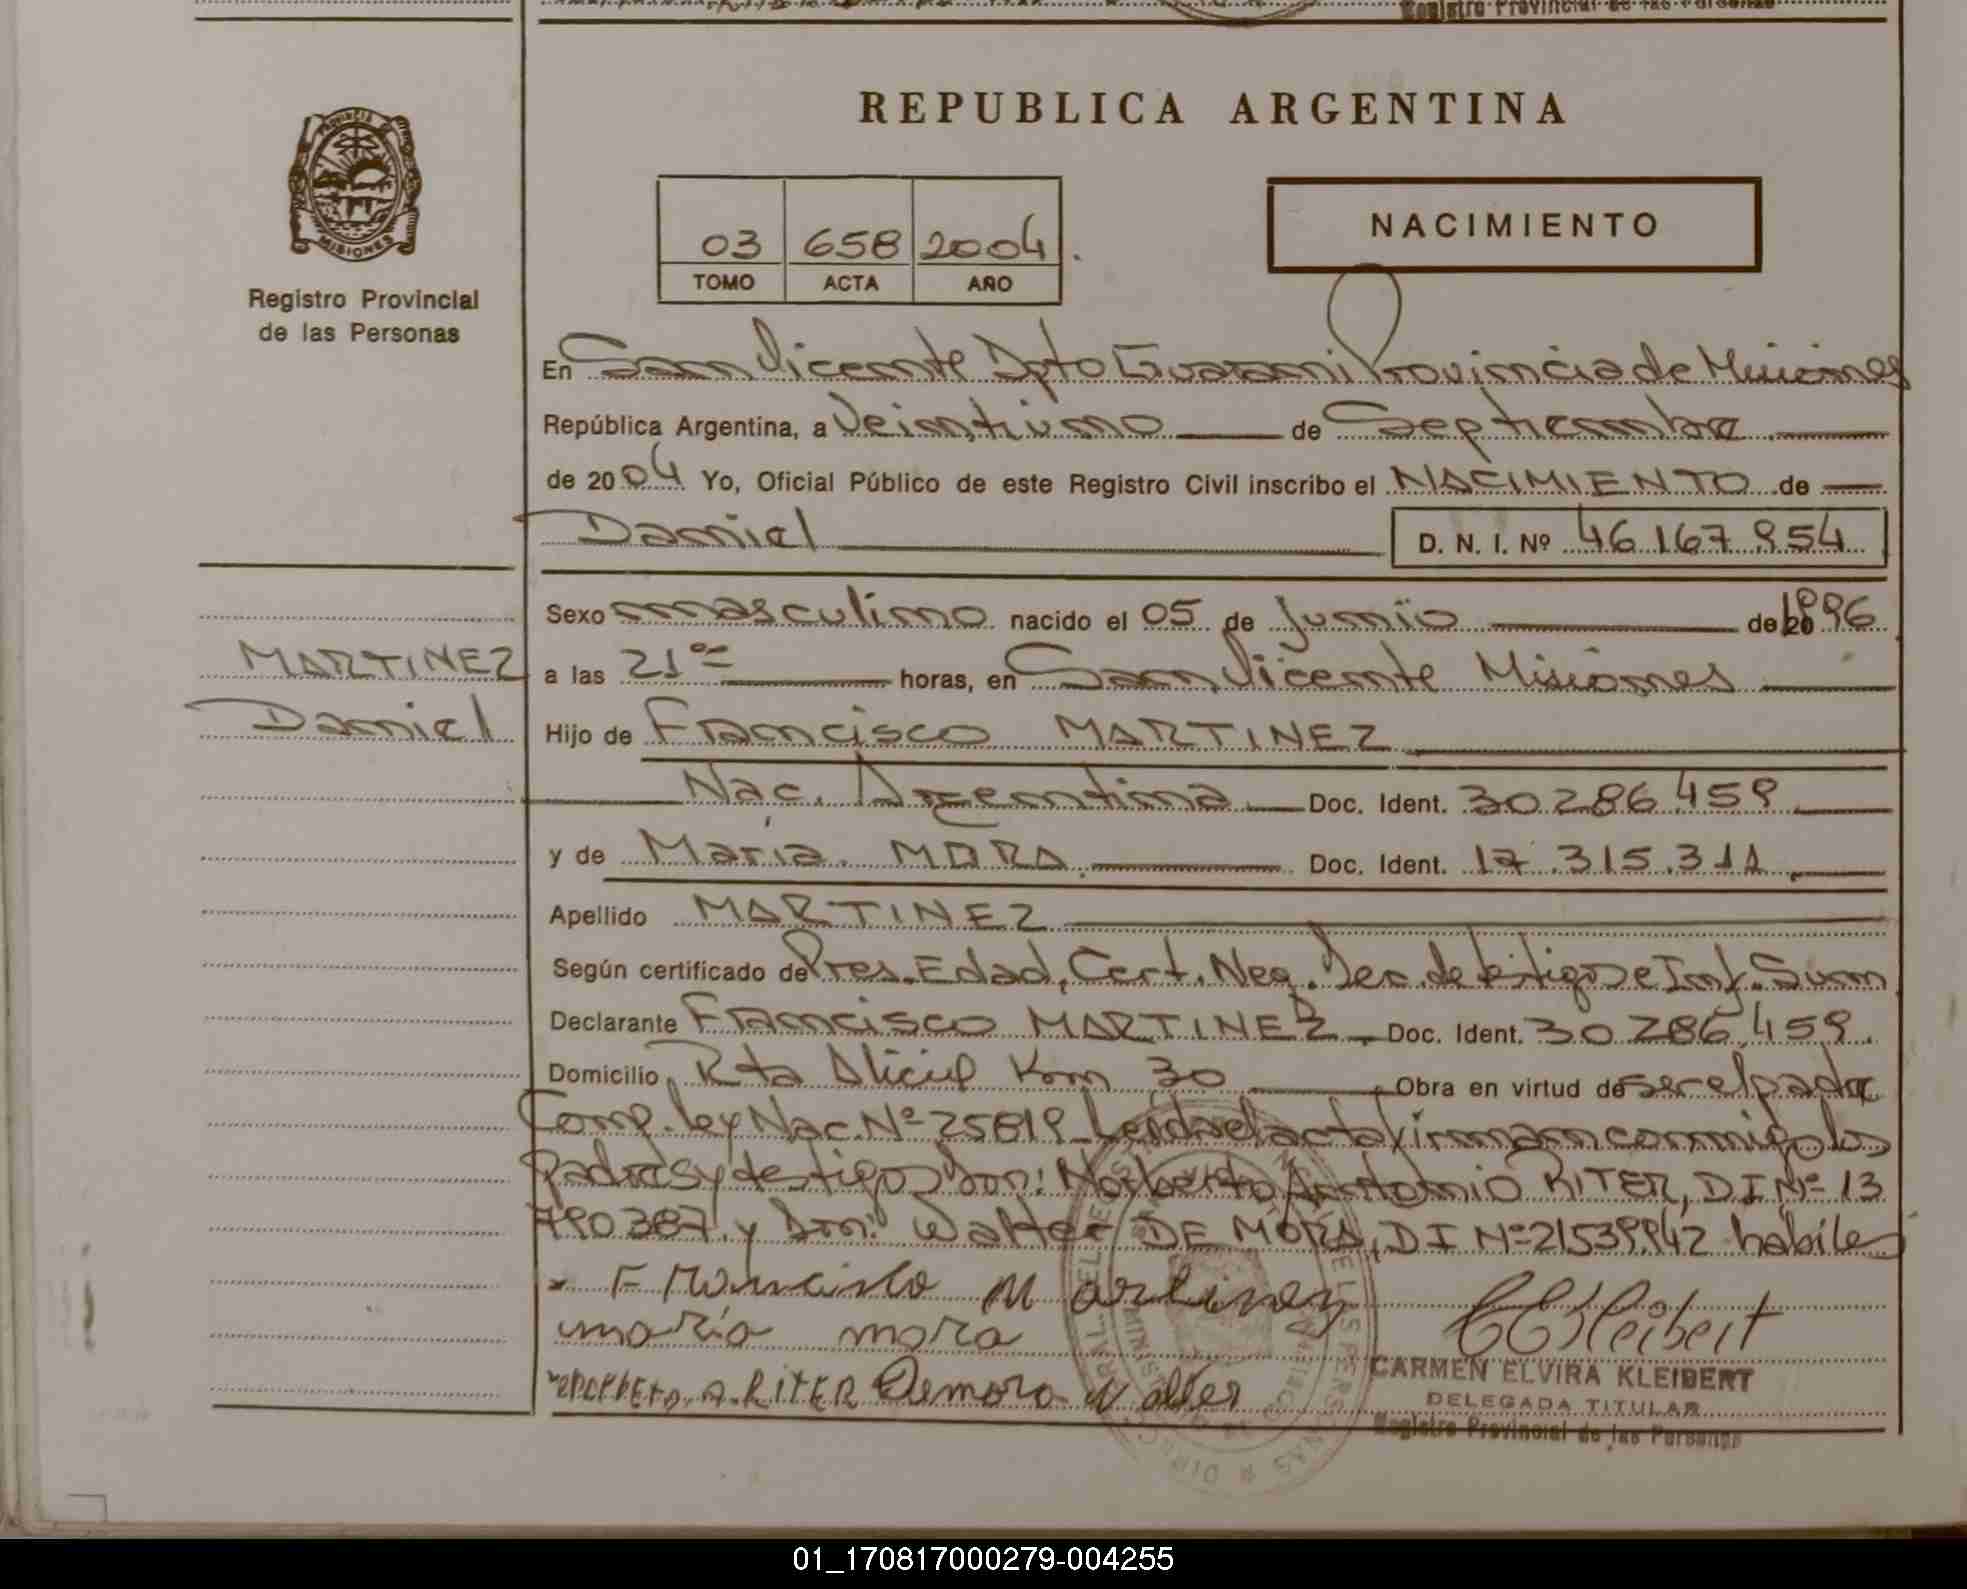 REPUBLICA ARGENTINA
PROVINCIA DE MISIONES
Registro Provincial
de las Personas
03 658 2004
TOMO ACTA AÑO
NACIMIENTO
En San Vicente Dpto Guarani Provincia de Misiones
República Argentina, a Veintiuno de Septiembre
de 2004 Yo, Oficial Público de este Registro Civil inscribo el NACIMIENTO de
Daniel D. N. I. Nº 46.167.954
Sexo masculino nacido el 05 de Junio de 1996
MARTINEZ
Daniel
a las 21 horas, en San Vicente Misiones
Hijo de Francisco MARTINEZ
Nac. Argentina Doc. Ident. 30.286.459
y de Maria MORA Doc. Ident. 17.315.311
Apellido MARTINEZ
Según certificado de Pres. Edad, Cert. Neg. Dec. de testigos e Inf. Sum
Declarante Francisco MARTINEZ Doc. Ident. 30.286.459
Domicilio Rta Alicia Km 30 Obra en virtud de ser el padre
Comp. ley Nac. Nº 25819 Leida el acta firman conmigo los
padres y testigos Don: Norberto Antonio RITER, DI Nº 13
790.387 y Don: Walter DE MORA, DI Nº 21539942 habiles
Francisco Martinez
maria mora
A. RITER Demora Walter
CARMEN ELVIRA KLEIBERT
DELEGADA TITULAR
Registro Provincial de las Personas
01_170817000279-004255